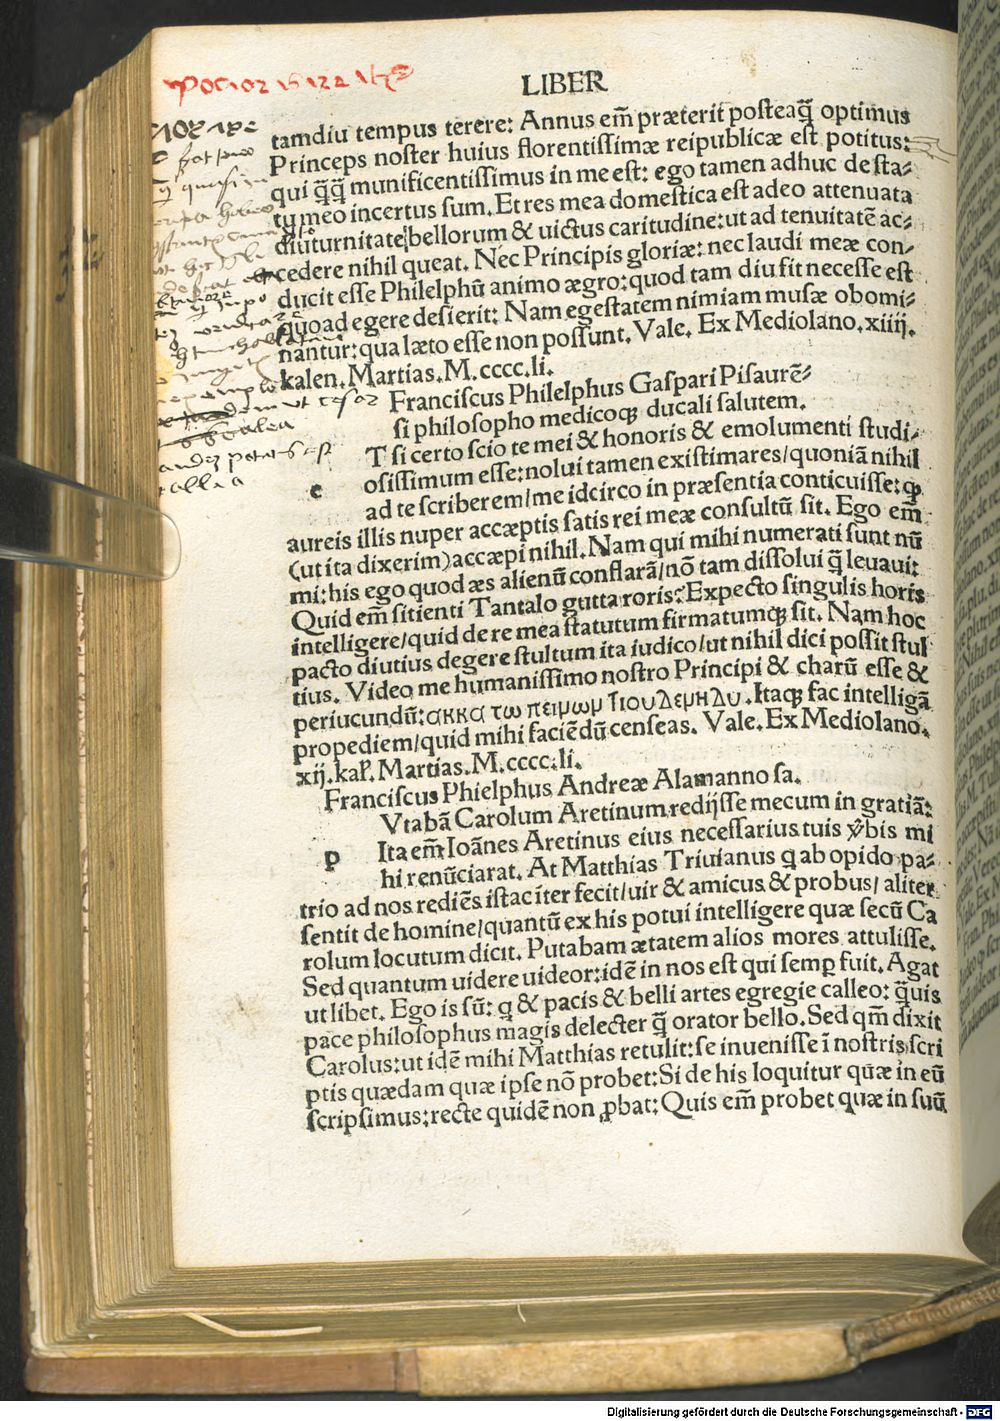 LIBER
tamdiu tempus terere: Annus em̃ præterit posteaq̃ optimus
Princeps noster huius florentissimæ reipublicæ est potitus:
qui q̃q̃ munificentissimus in me est: ego tamen adhuc de sta-
tu meo incertus sum. Et res mea domestica est adeo attenuata
diuturnitate bellorum & uictus caritudine: ut ad tenuitatē ac-
cedere nihil queat. Nec Principis gloriæ: nec laudi meæ con-
ducit esse Philelphū animo ægro: quod tam diu fit necesse est
quoad egere desierit: Nam egestatem nimiam musæ obomi-
nantur: qua læto esse non possunt. Vale. Ex Mediolano. xiiij.
kalen. Martias. M. cccc. li.
Franciscus Philelphus Gaspari Pisaurē-
si philosopho medicoq; ducali salutem.
T si certo scio te mei & honoris & emolumenti studi-
e osissimum esse: nolui tamen existimares/quoniā nihil
ad te scriberem/me idcirco in præsentia conticuisse: q
aureis illis nuper accæptis satis rei meæ consultū sit. Ego em̃
(ut ita dixerim) accæpi nihil. Nam qui mihi numerati sunt nū
mi: his ego quod æs alienū conflarā/nō tam dissolui q̃ leuaui:
Quid em̃ sitienti Tantalo gutta roris? Expecto singulis horis
intelligere/quid de re mea statutum firmatumq; sit. Nam hoc
pacto diutius degere stultum ita iudico/ut nihil dici possit stul
tius. Video me humanissimo nostro Principi & charū esse &
periucundū: ακκα τω πειμωμ τιουλεμηλυ. Itaq; fac intelligā
propediem/quid mihi faciēdū censeas. Vale. Ex Mediolano.
xij. kal. Martias. M. cccc. li.
Franciscus Phielphus Andreæ Alamanno sa.
Vtabā Carolum Aretinum redijsse mecum in gratiā:
p Ita em̃ Ioānes Aretinus eius necessarius tuis ỹbis mi
hi renūciarat. At Matthias Triuianus q ab opido pa-
trio ad nos rediēs istac iter fecit/uir & amicus & probus/ aliter
sentit de homine/quantū ex his potui intelligere quæ secū Ca
rolum locutum dicit. Putabam ætatem alios mores attulisse.
Sed quantum uidere uideor: idē in nos est qui semp fuit. Agat
ut libet. Ego is sū: q & pacis & belli artes egregie calleo: q̃uis
pace philosophus magis delecter q̃ orator bello. Sed qm̃ dixit
Carolus: ut idē mihi Matthias retulit: se inuenisse ī nostris scri
ptis quædam quæ ipse nō probet: Si de his loquitur quæ in eū
scripsimus: recte quidē non pbat: Quis em̃ probet quæ in suū
Digitalisierung gefördert durch die Deutsche Forschungsgemeinschaft - DFG